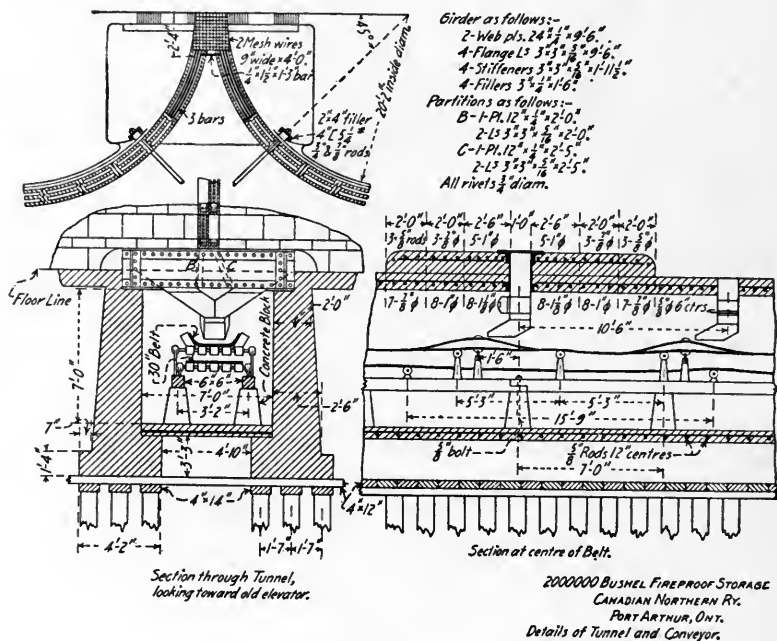 2'-4"
2 Mesh wires
9" wide × 4'-0."
1/4" × 1 1/2" × 1'-3" bar
3 bars
20'-2" inside diam.
2" × 4" filler
4" [ 5 1/4 #
3/4" & 7/8" rods
Girder as follows:-
2-Web pls. 24" × 1/4" × 9'-6."
4-Flange Ls 3" × 3" × 5/16" × 9'-6."
4-Stiffeners 3" × 3" × 5/16" × 1'-11 1/2."
4-Fillers 3" × 1/4" × 1'-6."
Partitions as follows:-
B-1-Pl. 12" × 1/4" × 2'-0."
2-Ls 3" × 3" × 5/16" × 2'-0."
C-1-Pl. 12" × 1/4" × 2'-5."
2-Ls 3" × 3" × 5/16" × 2'-5."
All rivets 3/4" diam.
B C
Floor Line
2'-0"
Concrete Block
30" Belt
6" × 6"
7'-0"
3'-2"
7'-0"
2'-6"
7"
1'-4"
4'-10"
3'-3"
4" × 14"
4" × 12"
4'-2"
1'-7" 1'-7"
Section through Tunnel,
looking toward old elevator.
2'-0" 2'-0" 2'-6" 1'-0" 2'-6" 2'-0" 2'-0"
3-5/8" rods 3-7/8" φ 5-1" φ 5-1" φ 3-7/8" φ 3-5/8" φ
7-7/8" φ 8-1" φ 8-1 1/8" φ 8-1 1/8" φ 8-1" φ 7-7/8" φ 5/8" φ 6" ctrs.
10'-6"
1'-6"
5'-3" 5'-3"
15'-9"
5/8" bolt
5/8" Rods 12" centres
7'-0"
Section at centre of Belt.
2000000 BUSHEL FIREPROOF STORAGE
CANADIAN NORTHERN RY.
PORT ARTHUR, ONT.
Details of Tunnel and Conveyor.